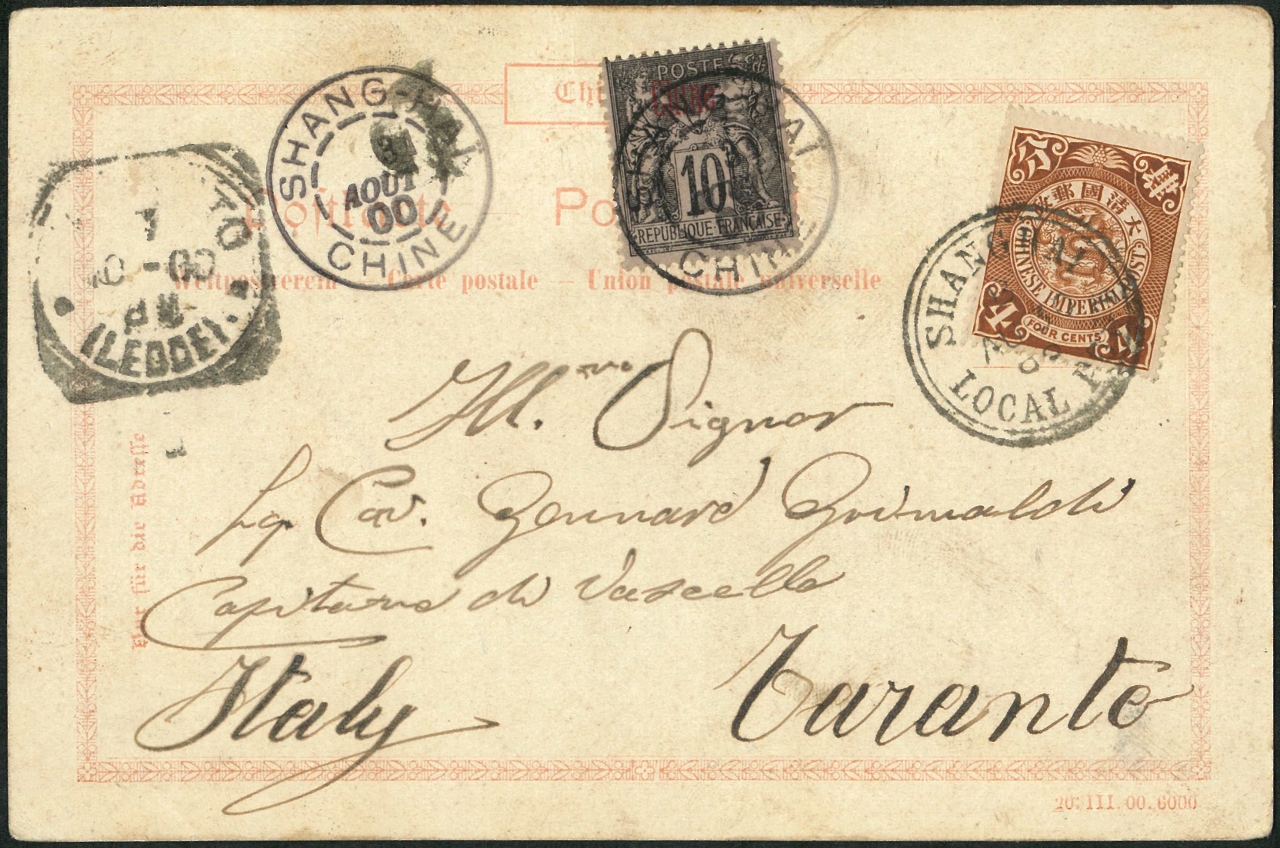 Chine
POSTE
Chine
10
REPUBLIQUE FRANÇAISE
SHANG-HAI
AOUT
00
CHINE
SHANG HAI
CHINE
大清國郵政
肆
分
CHINESE IMPERIAL POST
FOUR CENTS
4 4
SHANGHAI
LOCAL
TO
10 - 00
(LEDDE).
Postkarte — Po
Weltpostverein — Carte postale — Union postale universelle
Nur für die Adresse
Ill.mo Signor
Sig Cav. Gennaro Grimaldi
Capitano di Vascello
Italy Taranto
20. III. 00. 6000